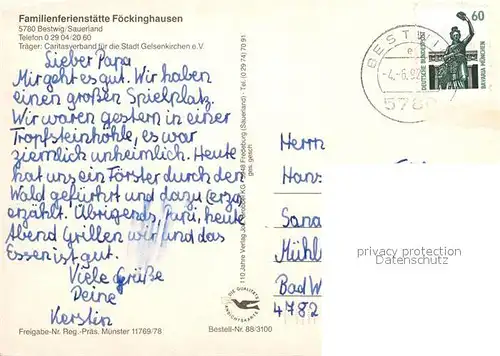 Familienferienstätte Föckinghausen
5780 Bestwig/Sauerland
Telefon 0 29 04/20 60
Träger: Caritasverband für die Stadt Gelsenkirchen e.V.
Lieber Papa
Mir geht es gut. Wir haben
einen großen Spielplatz.
Wir waren gestern in einer
Tropfsteinhöhle, es war
ziemlich unheimlich. Heute
hat uns ein Förster durch den
Wald geführt und dazu (erzä
erzählt. Übrigends, heute
Abend Grillen wir und das
Essen ist gut.
Viele Grüße
Deine
Kerstin
Freigabe-Nr. Reg.-Präs. Münster 11769/78
Bestell-Nr. 88/3100
110 Jahre Verlag
Fredeburg (Sauerland) - Tel. (0 29 74) 70 91
ges. gesch
DIE QUALITÄTS
ANSICHTSKARTE
BESTWI
-4.-6.92
578
60
DEUTSCHE BUNDESPOST
BAVARIA MÜNCHEN
Herrn
Hans-
Sana
Mühl
Bad W
4782
privacy protection
Datenschutz